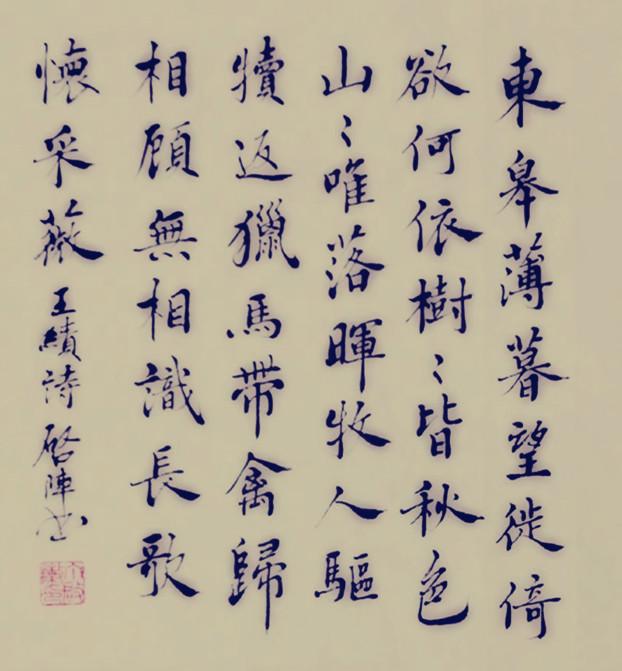 東皋薄暮望徙倚
欲何依樹〻皆秋色
山〻唯落暉牧人驅
犢返獵馬帶禽歸
相顧無相識長歌
懷采薇王績詩啓陣书